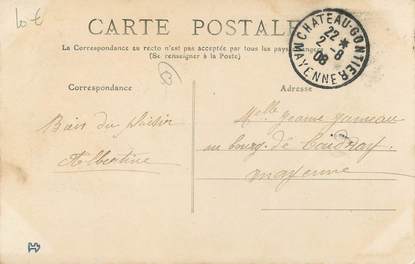 10 €
CARTE POSTALE
La Correspondance au recto n'est pas acceptée par tous les pays étrangers
(Se renseigner à la Poste)
CHATEAU-GONTIER
22 *
2-8
08
MAYENNE
53
Correspondance
Adresse
Melle Jeanne
au bourg de Coudray
mayenne
Albertine